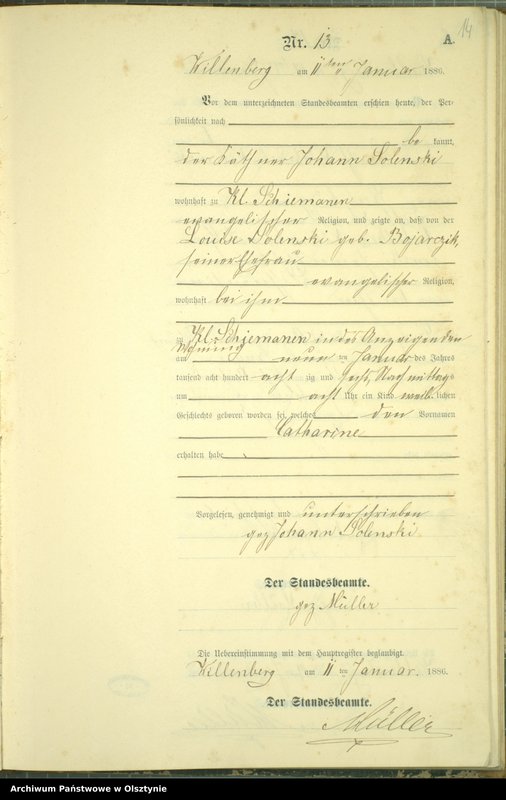 14
Nr. 13 A.
Willenberg am 11 ten Januar 1886.
Vor dem unterzeichneten Standesbeamten erschien heute, der Per-
sönlichkeit nach
be kannt,
der Käthner Johann Dolenski
wohnhaft zu Kl. Schiemanen
evangelischer Religion, und zeigte an, daß von der
Louise Dolenski geb. Bojarczik,
seiner Ehefrau
evangelischer Religion,
wohnhaft bei ihm
zu Kl. Schiemanen in des Anzeigenden
Wohnung
am neun ten Januar des Jahres
tausend acht hundert acht zig und sechs, Nachmittags
um acht Uhr ein Kind weib lichen
Geschlechts geboren worden sei, welches den Vornamen
Catharine
erhalten habe
Vorgelesen, genehmigt und unterschrieben
gez Johann Dolenski.
Der Standesbeamte.
gez Müller
Die Uebereinstimmung mit dem Hauptregister beglaubigt.
Willenberg am 11 ten Januar. 1886.
Der Standesbeamte.
Müller
Archiwum Państwowe w Olsztynie